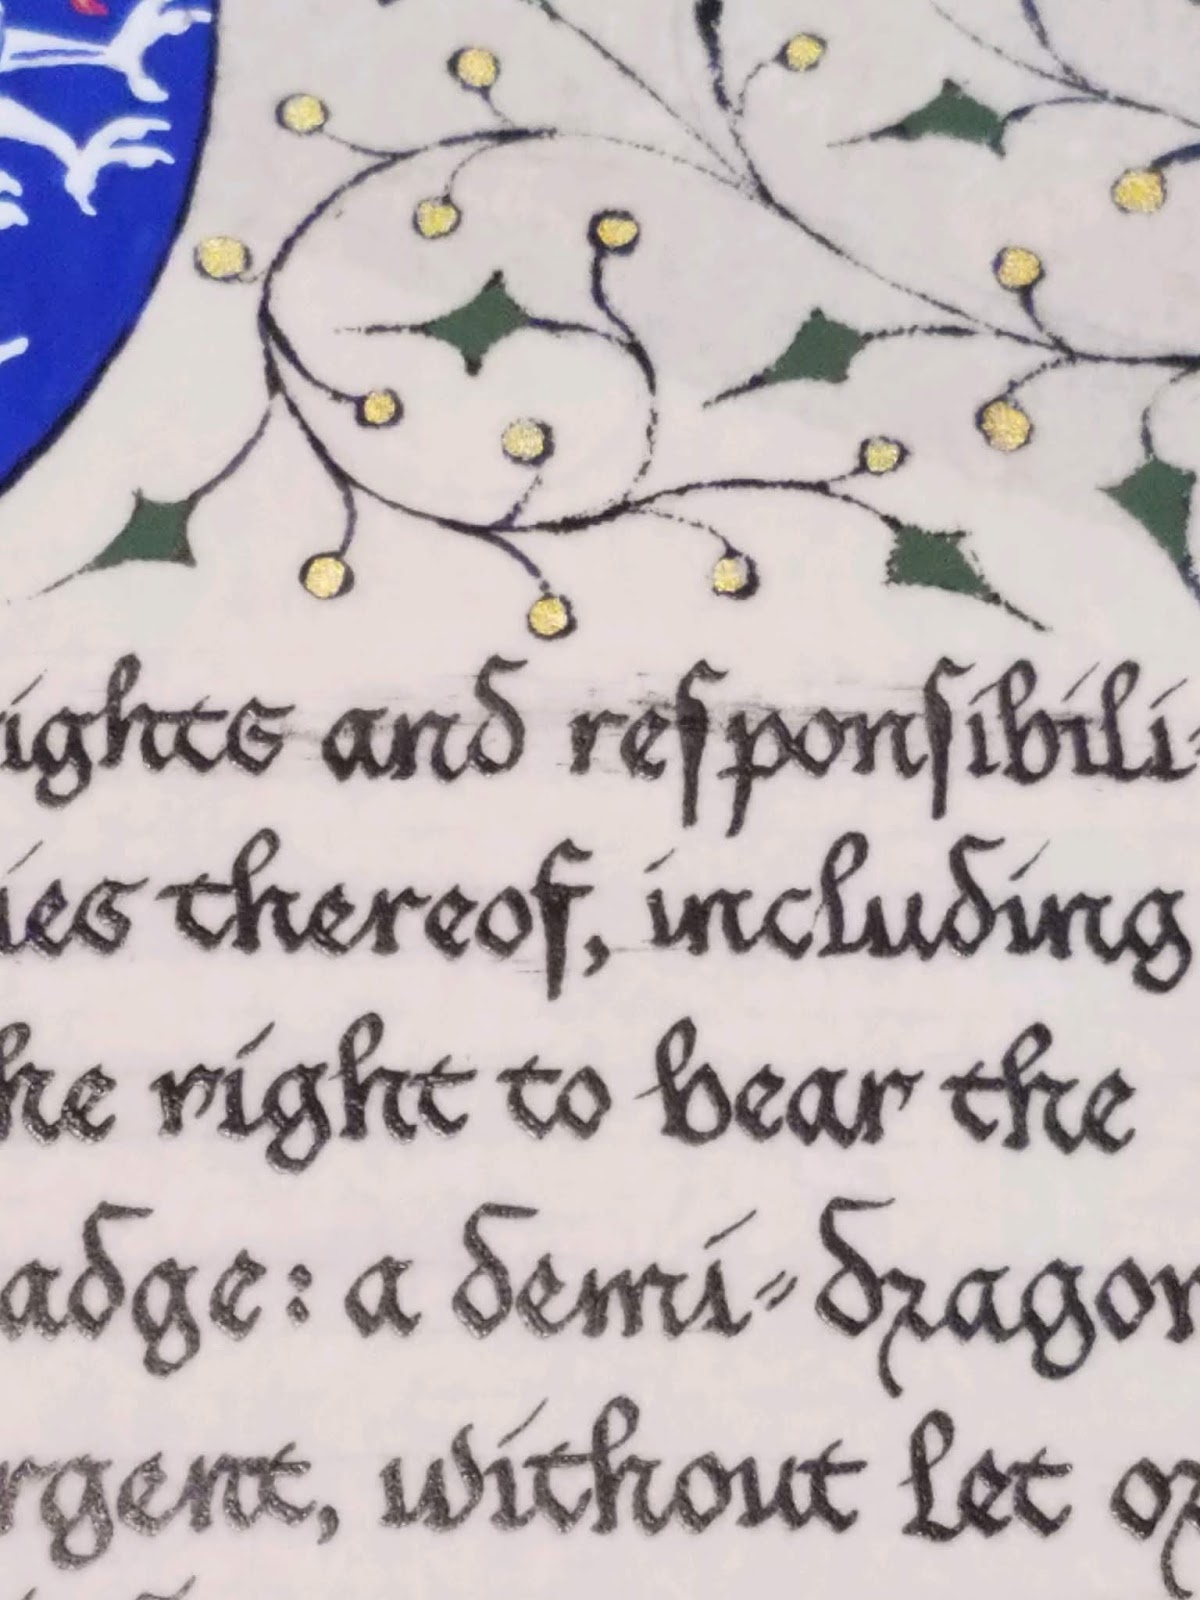 ights and reſponſibili-
ies thereof, including
he right to bear the
adge: a demi-dragon
rgent, without let or